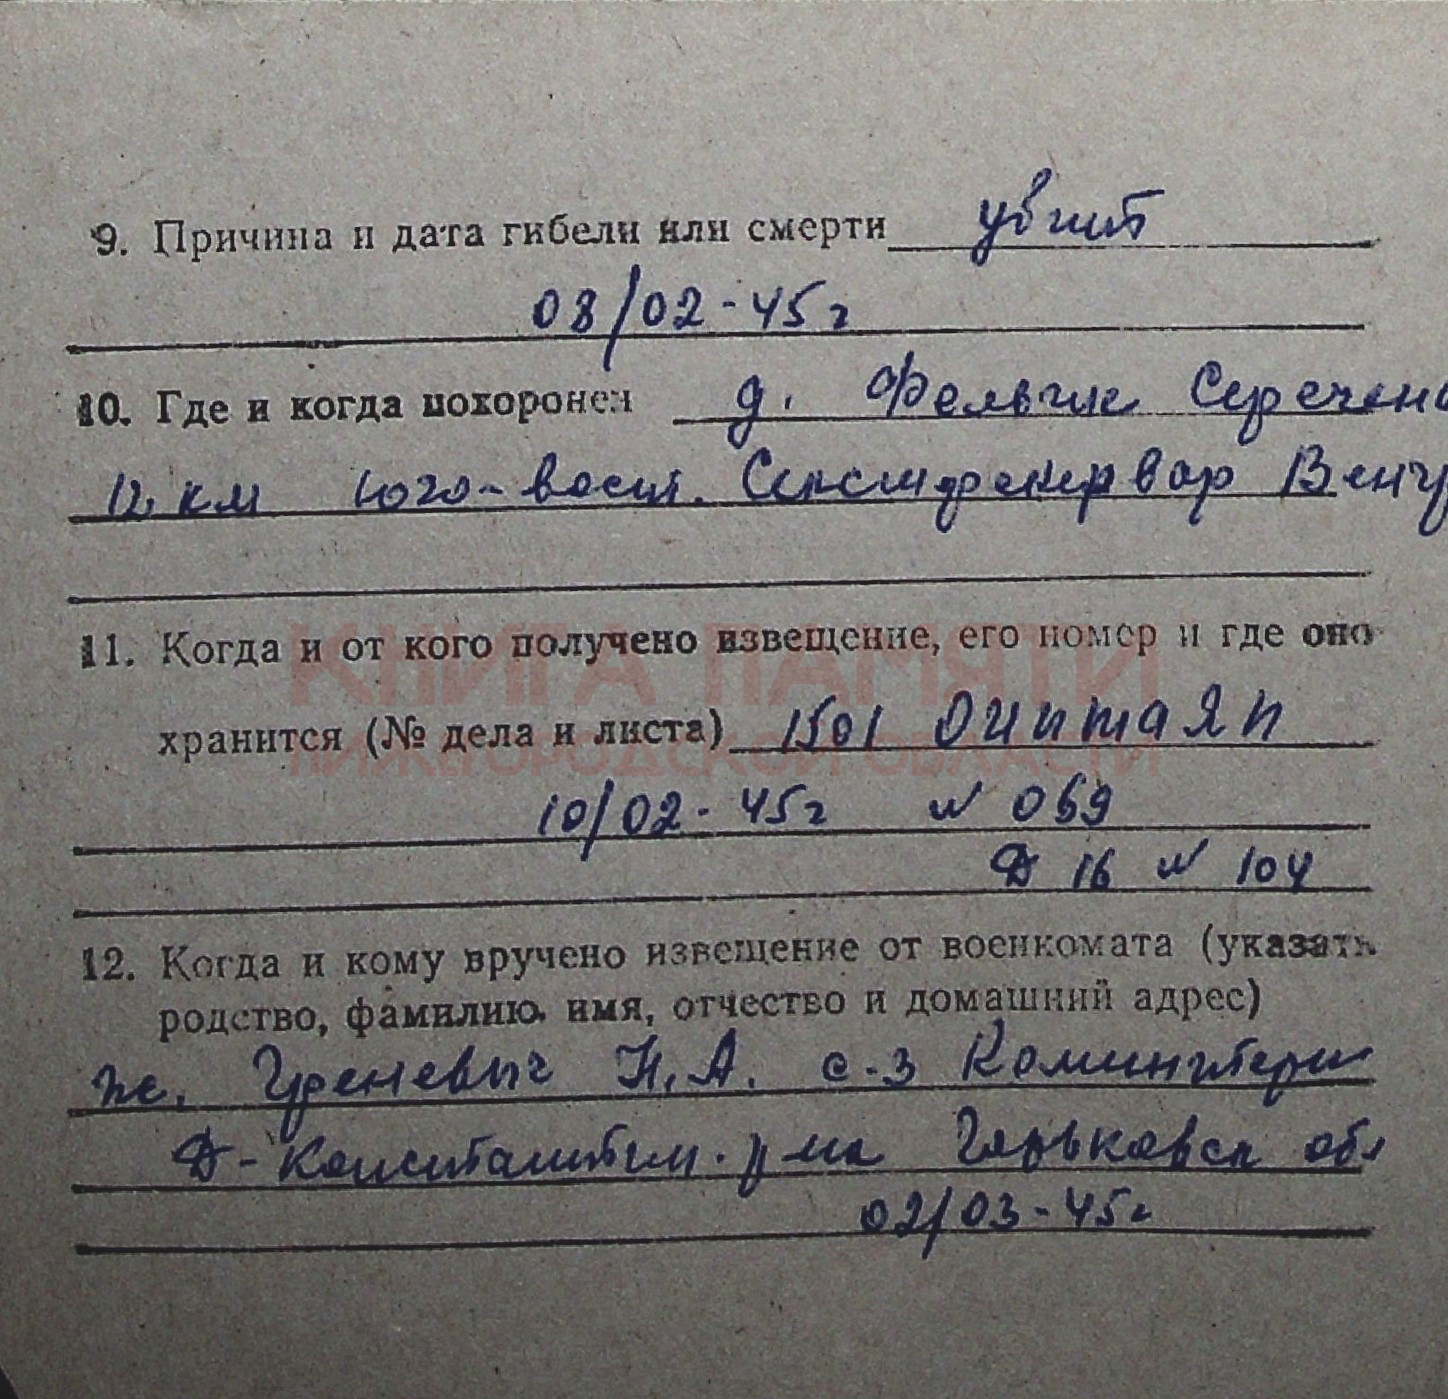 9. Причина и дата гибели или смерти убит
08/02-45г
10. Где и когда похоронен д. Серечен
12 км юго-вост. Венг
11. Когда и от кого получено извещение, его номер и где оно
КНИГА ПАМЯТИ
хранится (№ дела и листа) 1501
НИЖЕГОРОДСКОЙ ОБЛАСТИ
10/02-45г № 069
Д 16 № 104
12. Когда и кому вручено извещение от военкомата (указать
родство, фамилию, имя, отчество и домашний адрес)
ж. Греневыч Н.А. с-з Коминтерн
Д-Константин. р-на Горьковск обл
02/03-45г